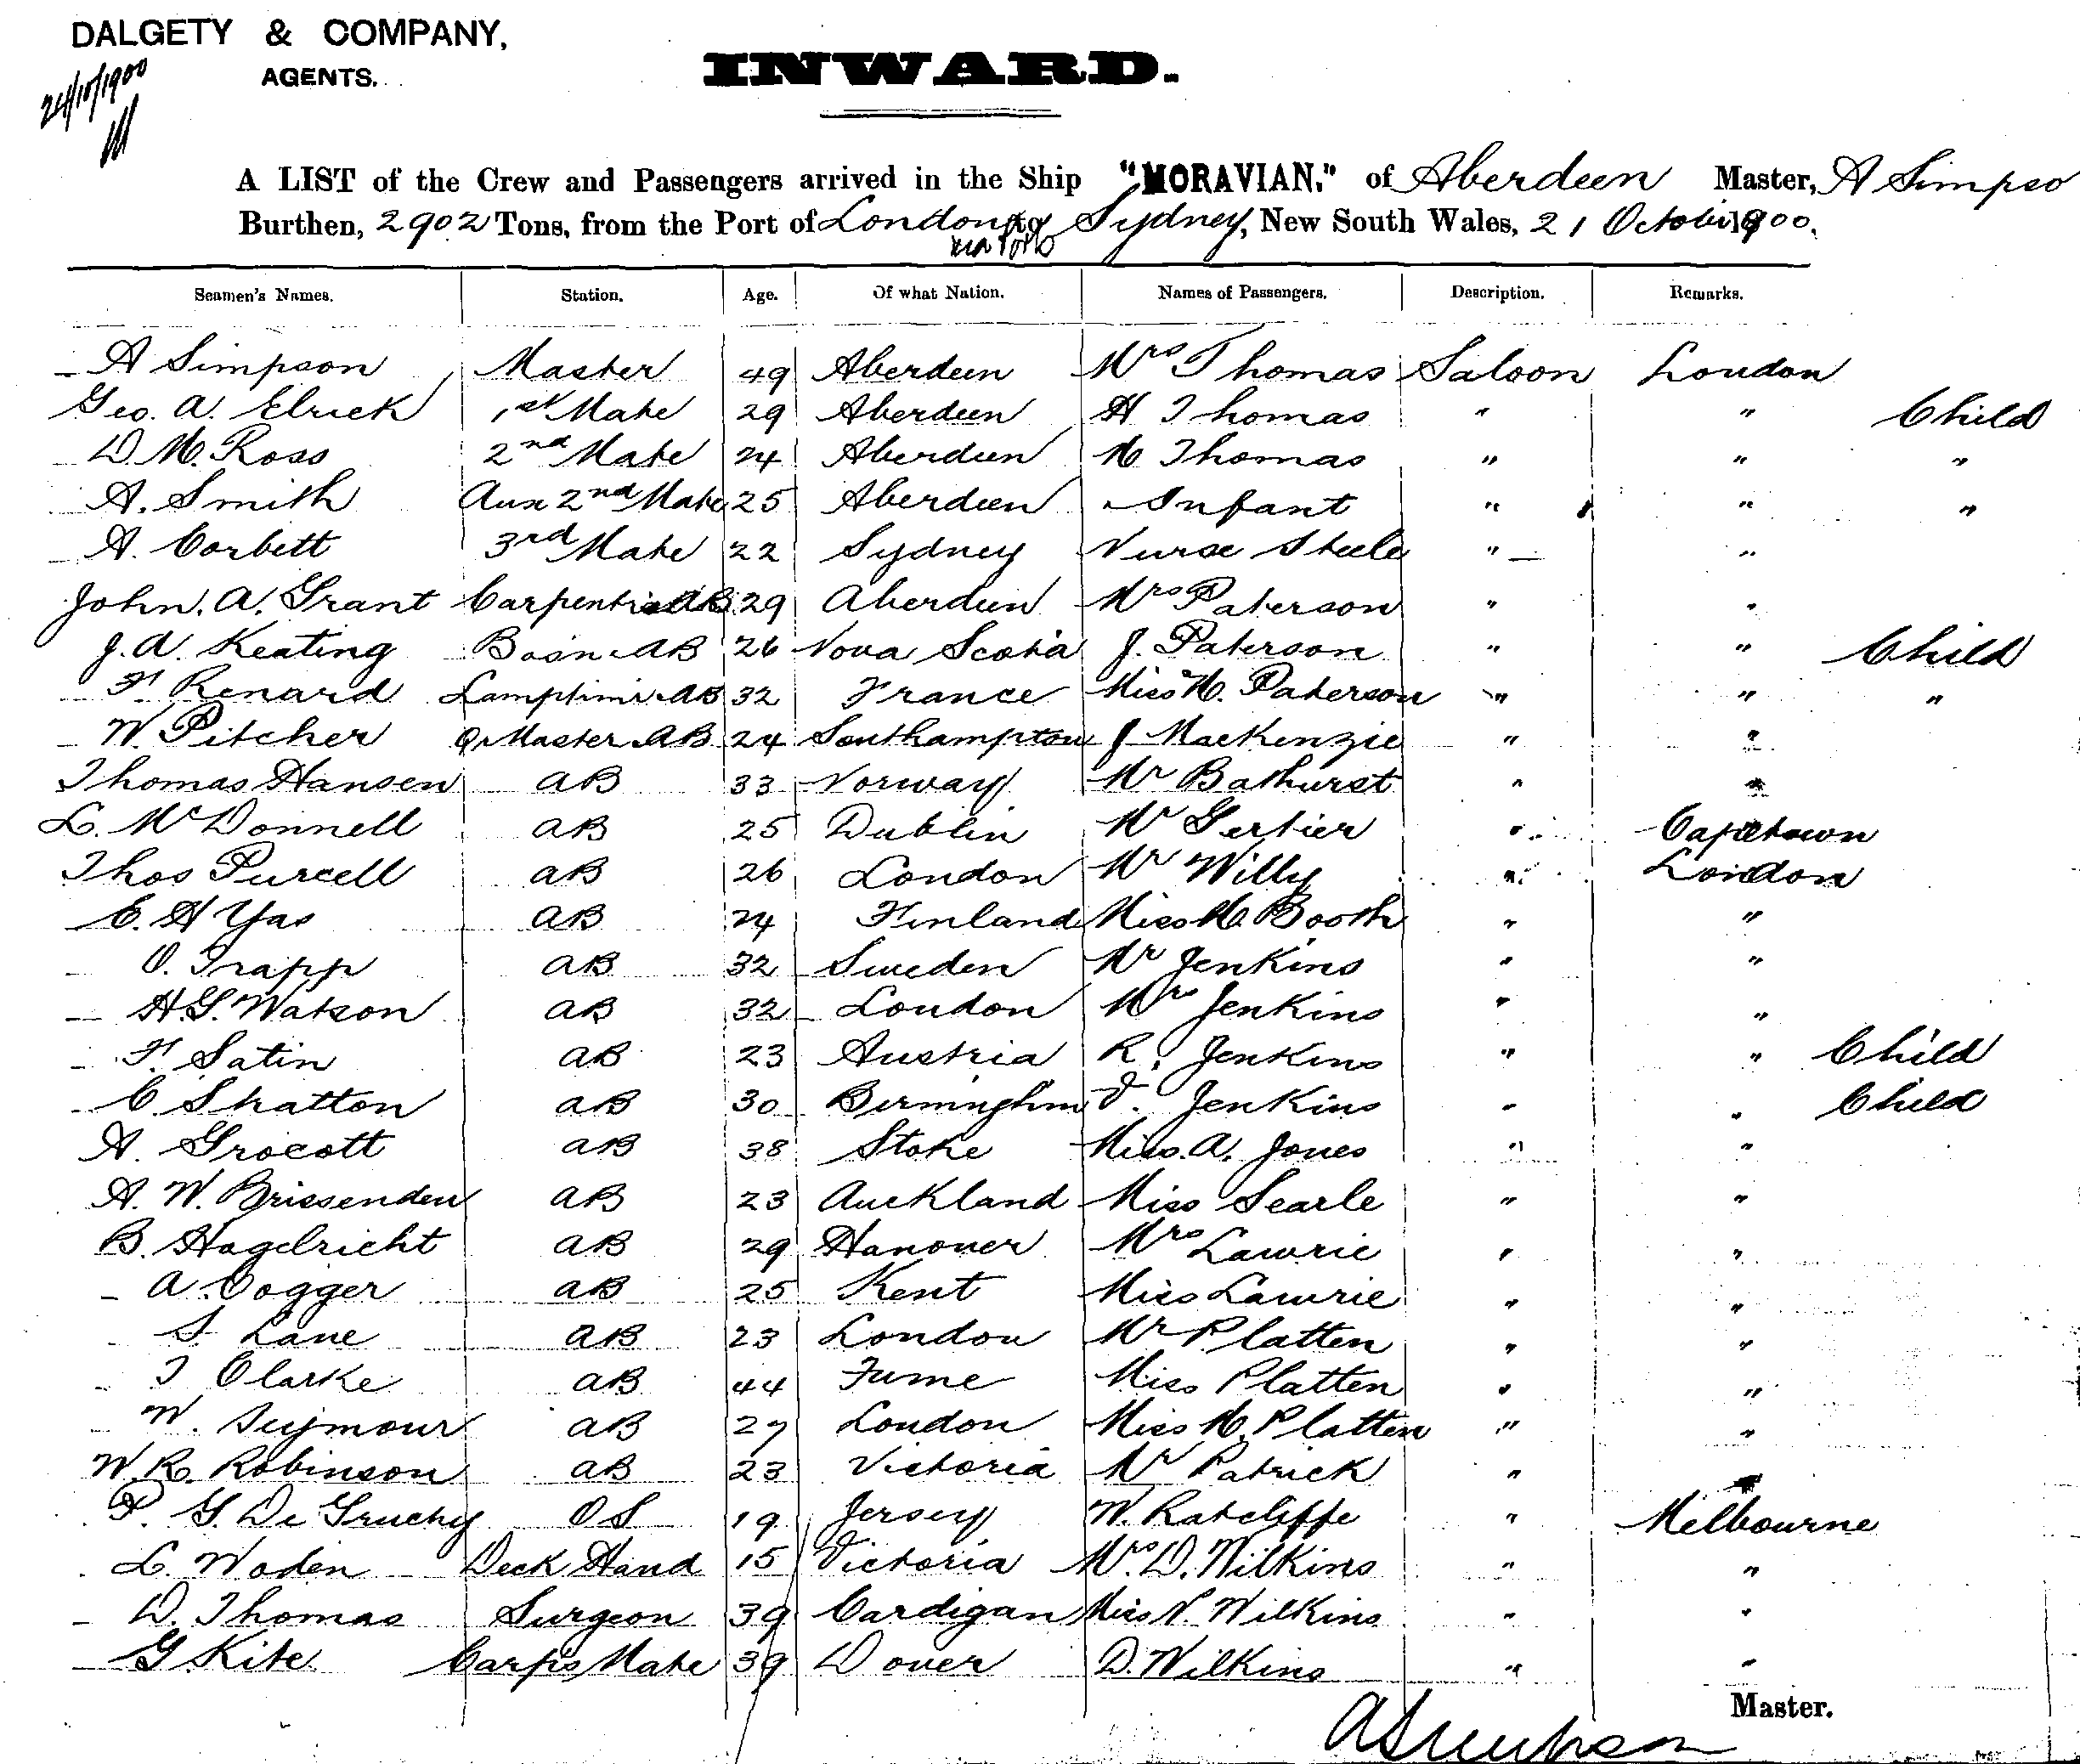 DALGETY & COMPANY,
AGENTS.
24/10/1900
INWARD.
A LIST of the Crew and Passengers arrived in the Ship "MORAVIAN." of Aberdeen Master, A Simpso
Burthen, 2902 Tons, from the Port of London to Sydney, New South Wales, 21 October 1900.
via Ports
Seamen's Names. Station. Age. Of what Nation. Names of Passengers. Description. Remarks.
A Simpson Master 49 Aberdeen Mrs Thomas Saloon London
Geo. A. Elrick 1st Mate 29 Aberdeen H Thomas " " Child
D. M. Ross 2nd Mate 24 Aberdeen M Thomas " " "
A. Smith Aux 2nd Mate 25 Aberdeen Infant " " "
A. Corbett 3rd Mate 22 Sydney Nurse Steele " "
John. A. Grant Carpenter AB 29 Aberdeen Mrs Paterson " "
J. A. Keating Bosn AB 26 Nova Scotia J. Paterson " " Child
F Renard Lamptimr AB 32 France Miss M. Paterson " " "
W. Pitcher Q Master AB 24 Southampton J MacKenzie " "
Thomas Hansen AB 33 Norway Mr Bathurst " "
L. McDonnell AB 25 Dublin Mr Gertier " Capetown
Thos Purcell AB 26 London Mr Willy " London
E. H Yas AB 24 Finland Miss M. Booth " "
O. Trapp AB 32 Sweden Mr Jenkins " "
H G. Watson AB 32 London Mrs Jenkins " "
F. Satin AB 23 Austria R. Jenkins " " Child
C Stratton AB 30 Birminghm V. Jenkins " " Child
A. Grocott AB 38 Stoke Miss. A. Jones " "
A. W. Brissenden AB 23 Auckland Miss Searle " "
B. Hagelricht AB 29 Hanover Mrs Lawrie " "
A. Cogger AB 25 Kent Miss Lawrie " "
S Lane AB 23 London Mr Platten " "
T Clarke AB 44 Fume Miss Platten " "
W. Seymour AB 27 London Miss M. Platten " "
W. R. Robinson AB 23 Victoria Mr Patrick " "
P. G. De Gruchy OS 19 Jersey W. Ratcliffe " Melbourne
L. Woden Deck Hand 15 Victoria Mrs D. Wilkins " "
D. Thomas Surgeon 39 Cardigan Miss V. Wilkins " "
G Kite Carps Mate 39 Dover D. Wilkins " "
Master.
A Simpson